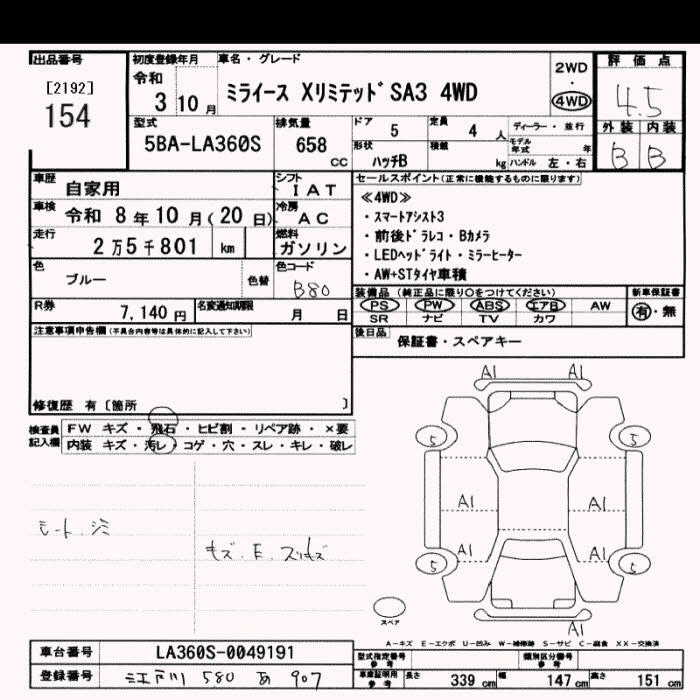 出品番号 初度登録年月 車名・グレード 評価点
[2192] 154
令和 3 10月 ミライース XリミテッドSA3 4WD 2WD・4WD 4.5
型式 排気量 ドア 5 定員 4人 ディーラー・並行 外装 内装
5BA-LA360S 658 cc 形状 ハッチB 積載 kg モデル年式 年 ハンドル 左・右 B B
車歴 自家用 シフト IAT セールスポイント(正常に機能するものに限ります)
車検 令和 8年10月(20日) 冷房 AC ≪4WD≫
・スマートアシスト3
走行 2万5千801 km 燃料 ガソリン ・前後ドラレコ・Bカメラ
・LEDヘッドライト・ミラーヒーター
色 ブルー 色替 色コード B80 ・AW+STタイヤ車積
装備品(純正品に限り○をつけてください) 新車保証書
R券 7,140円 名変通知期限 月 日 PS PW ABS エアB AW 有・無
SR ナビ TV カワ
注意事項申告欄(不具合内容等は具体的に記入して下さい) 後日品 保証書・スペアキー
修復歴 有〔箇所 〕
検査員記入欄 FW キズ・飛石・ヒビ割・リペア跡・×要
内装 キズ・汚レ・コゲ・穴・スレ・キレ・破レ
A1 A1
5 5
A1 A1
シート.シミ
キズ.E.スリキズ
A1 A1
5 5
スペア
A1
A-キズ E-エクボ U-凹み W-補修跡 S-サビ C-腐食 XX-交換済
車台番号 LA360S-0049191 型式指定番号 参考 類別区分番号 参考
登録番号 江戸川 580 あ 907 車庫証明用 参考 長さ 339cm 幅 147cm 高さ 151cm